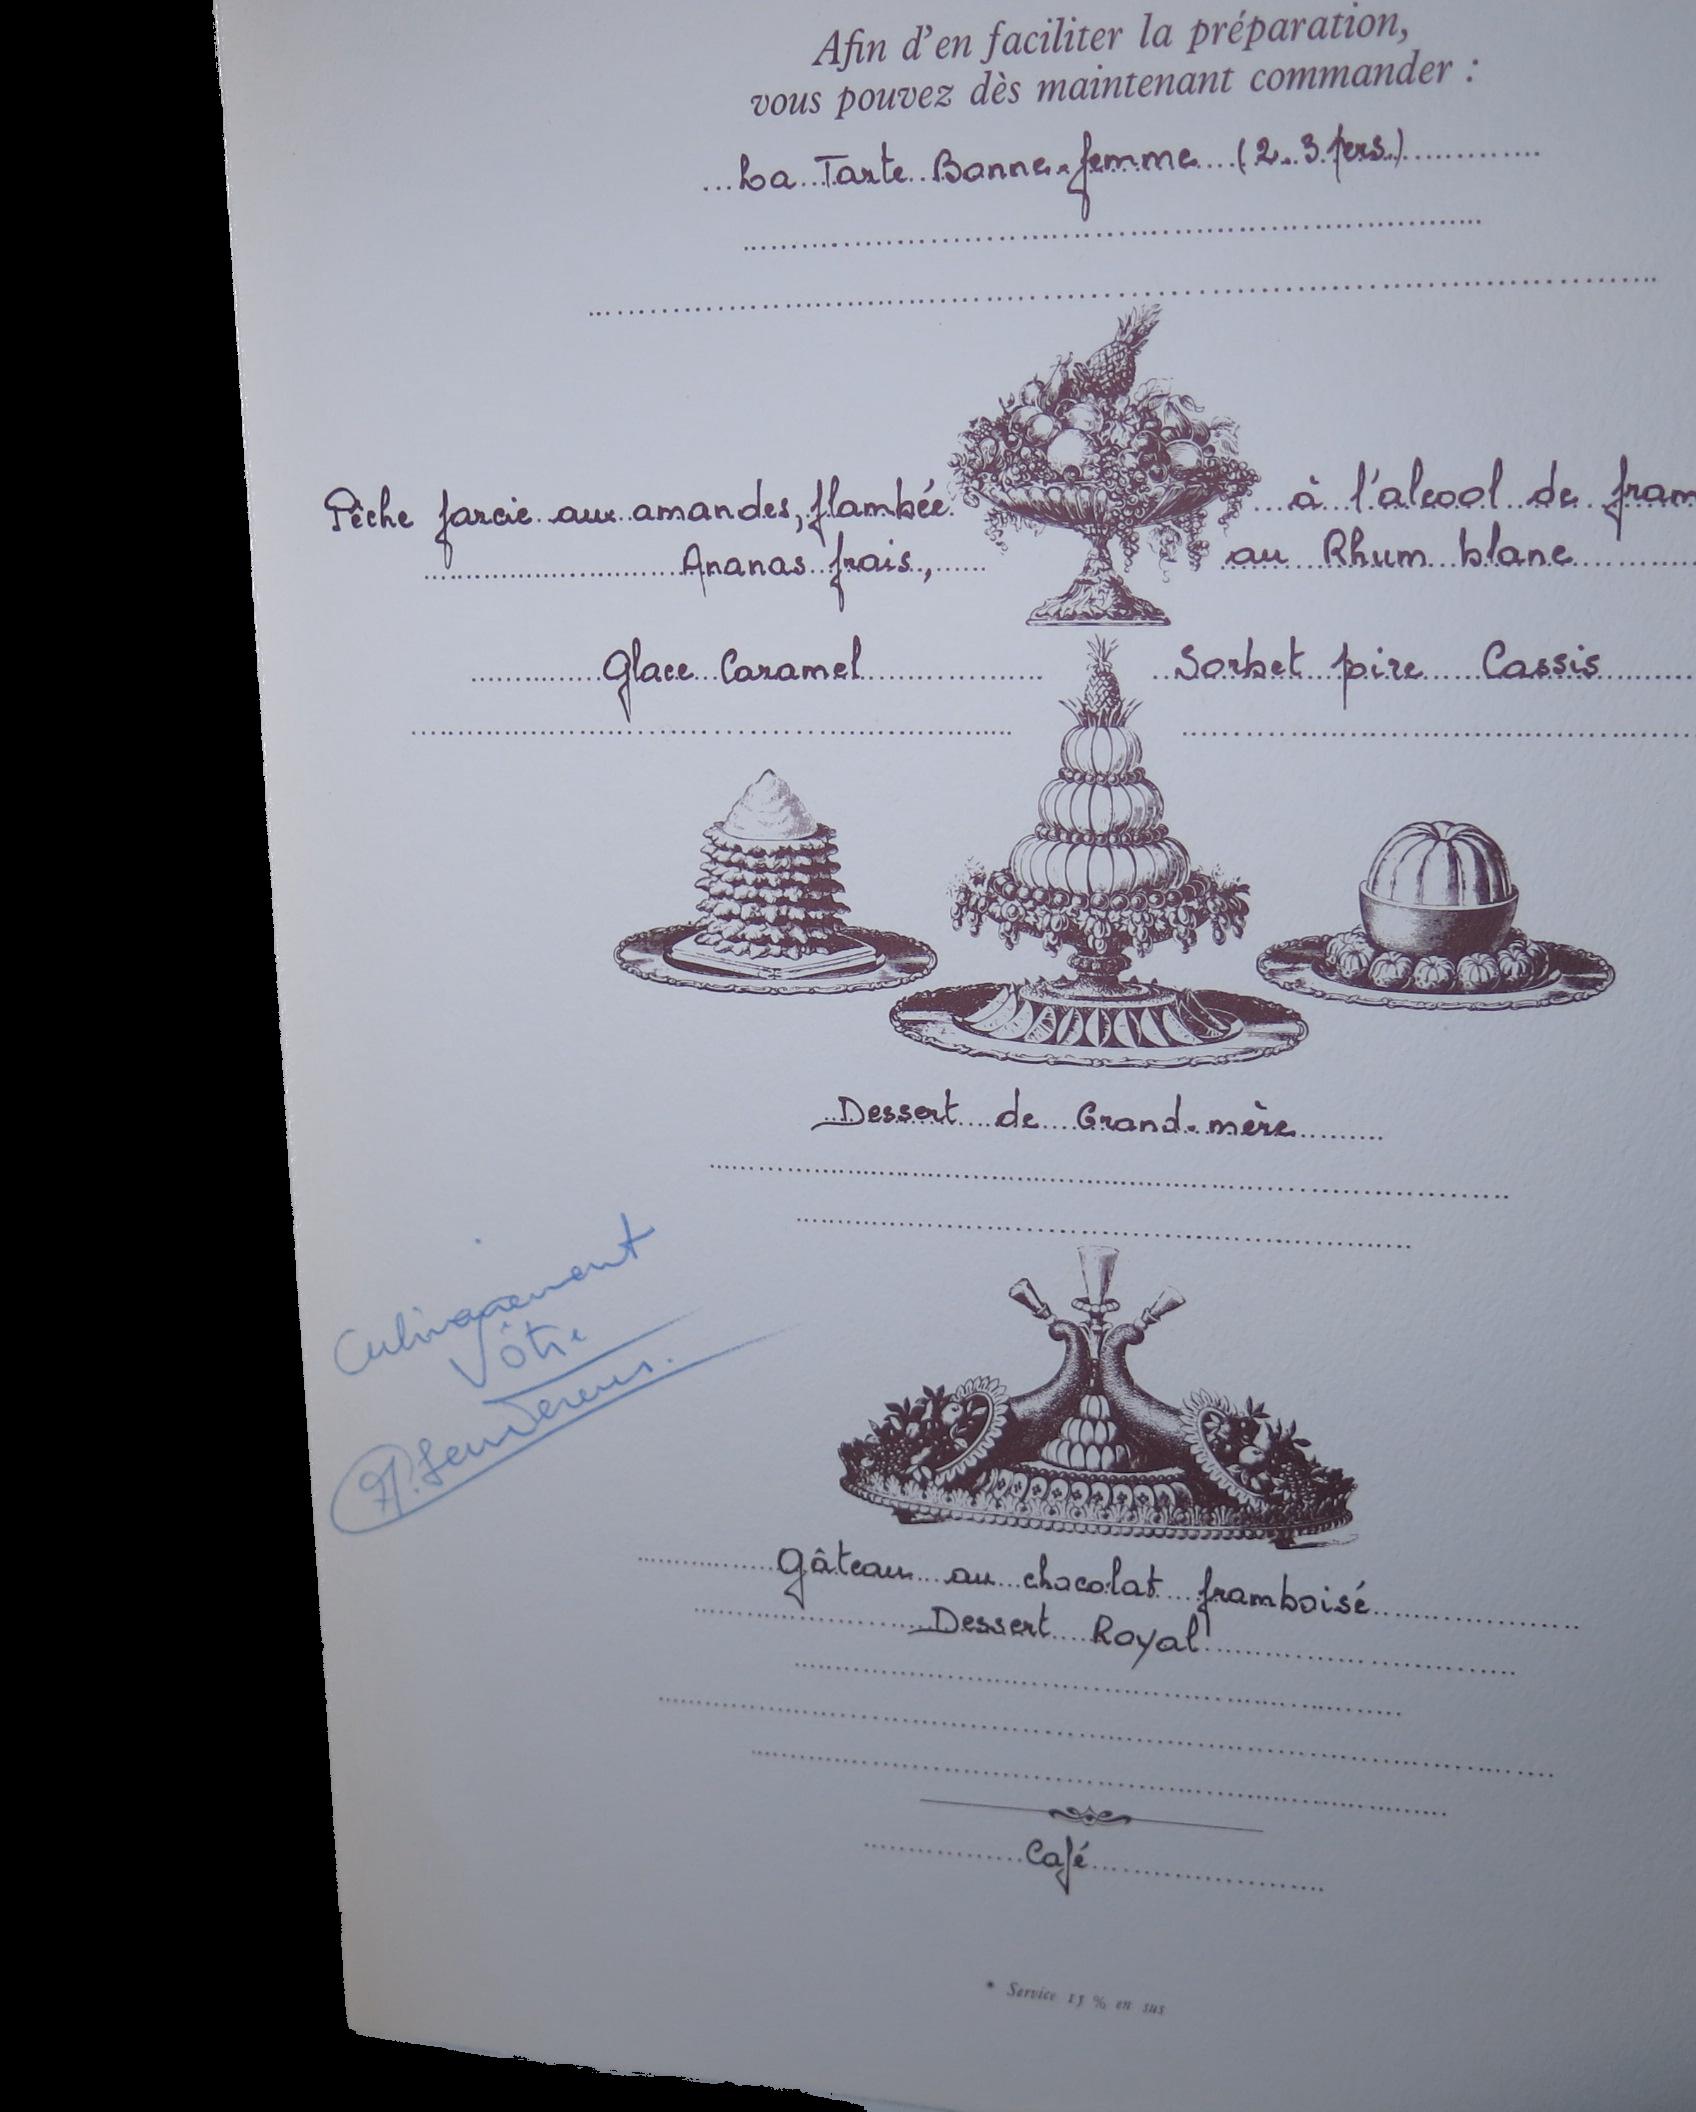 Afin d'en faciliter la préparation,
vous pouvez dès maintenant commander :
La Tarte Bonne-femme (2.3 pers.)
Pêche farcie aux amandes, flambée à l'alcool de fram
Ananas frais, au Rhum blanc
Glace Caramel Sorbet poire Cassis
Dessert de Grand-mère
Culinairement
Vôtre
A. Senderens.
Gâteau au chocolat framboisé
Dessert Royal
Café
* Service 15 % en sus